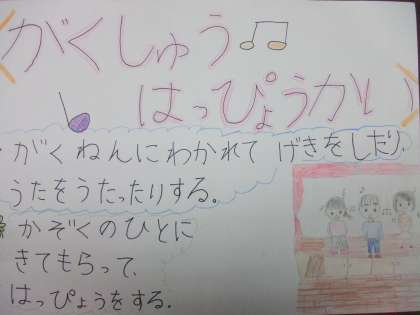 がくしゅう
はっぴょうかい
・がくねんにわかれて げきをしたり、
うたをうたったりする。
かぞくのひとに
きてもらって、
はっぴょうをする.